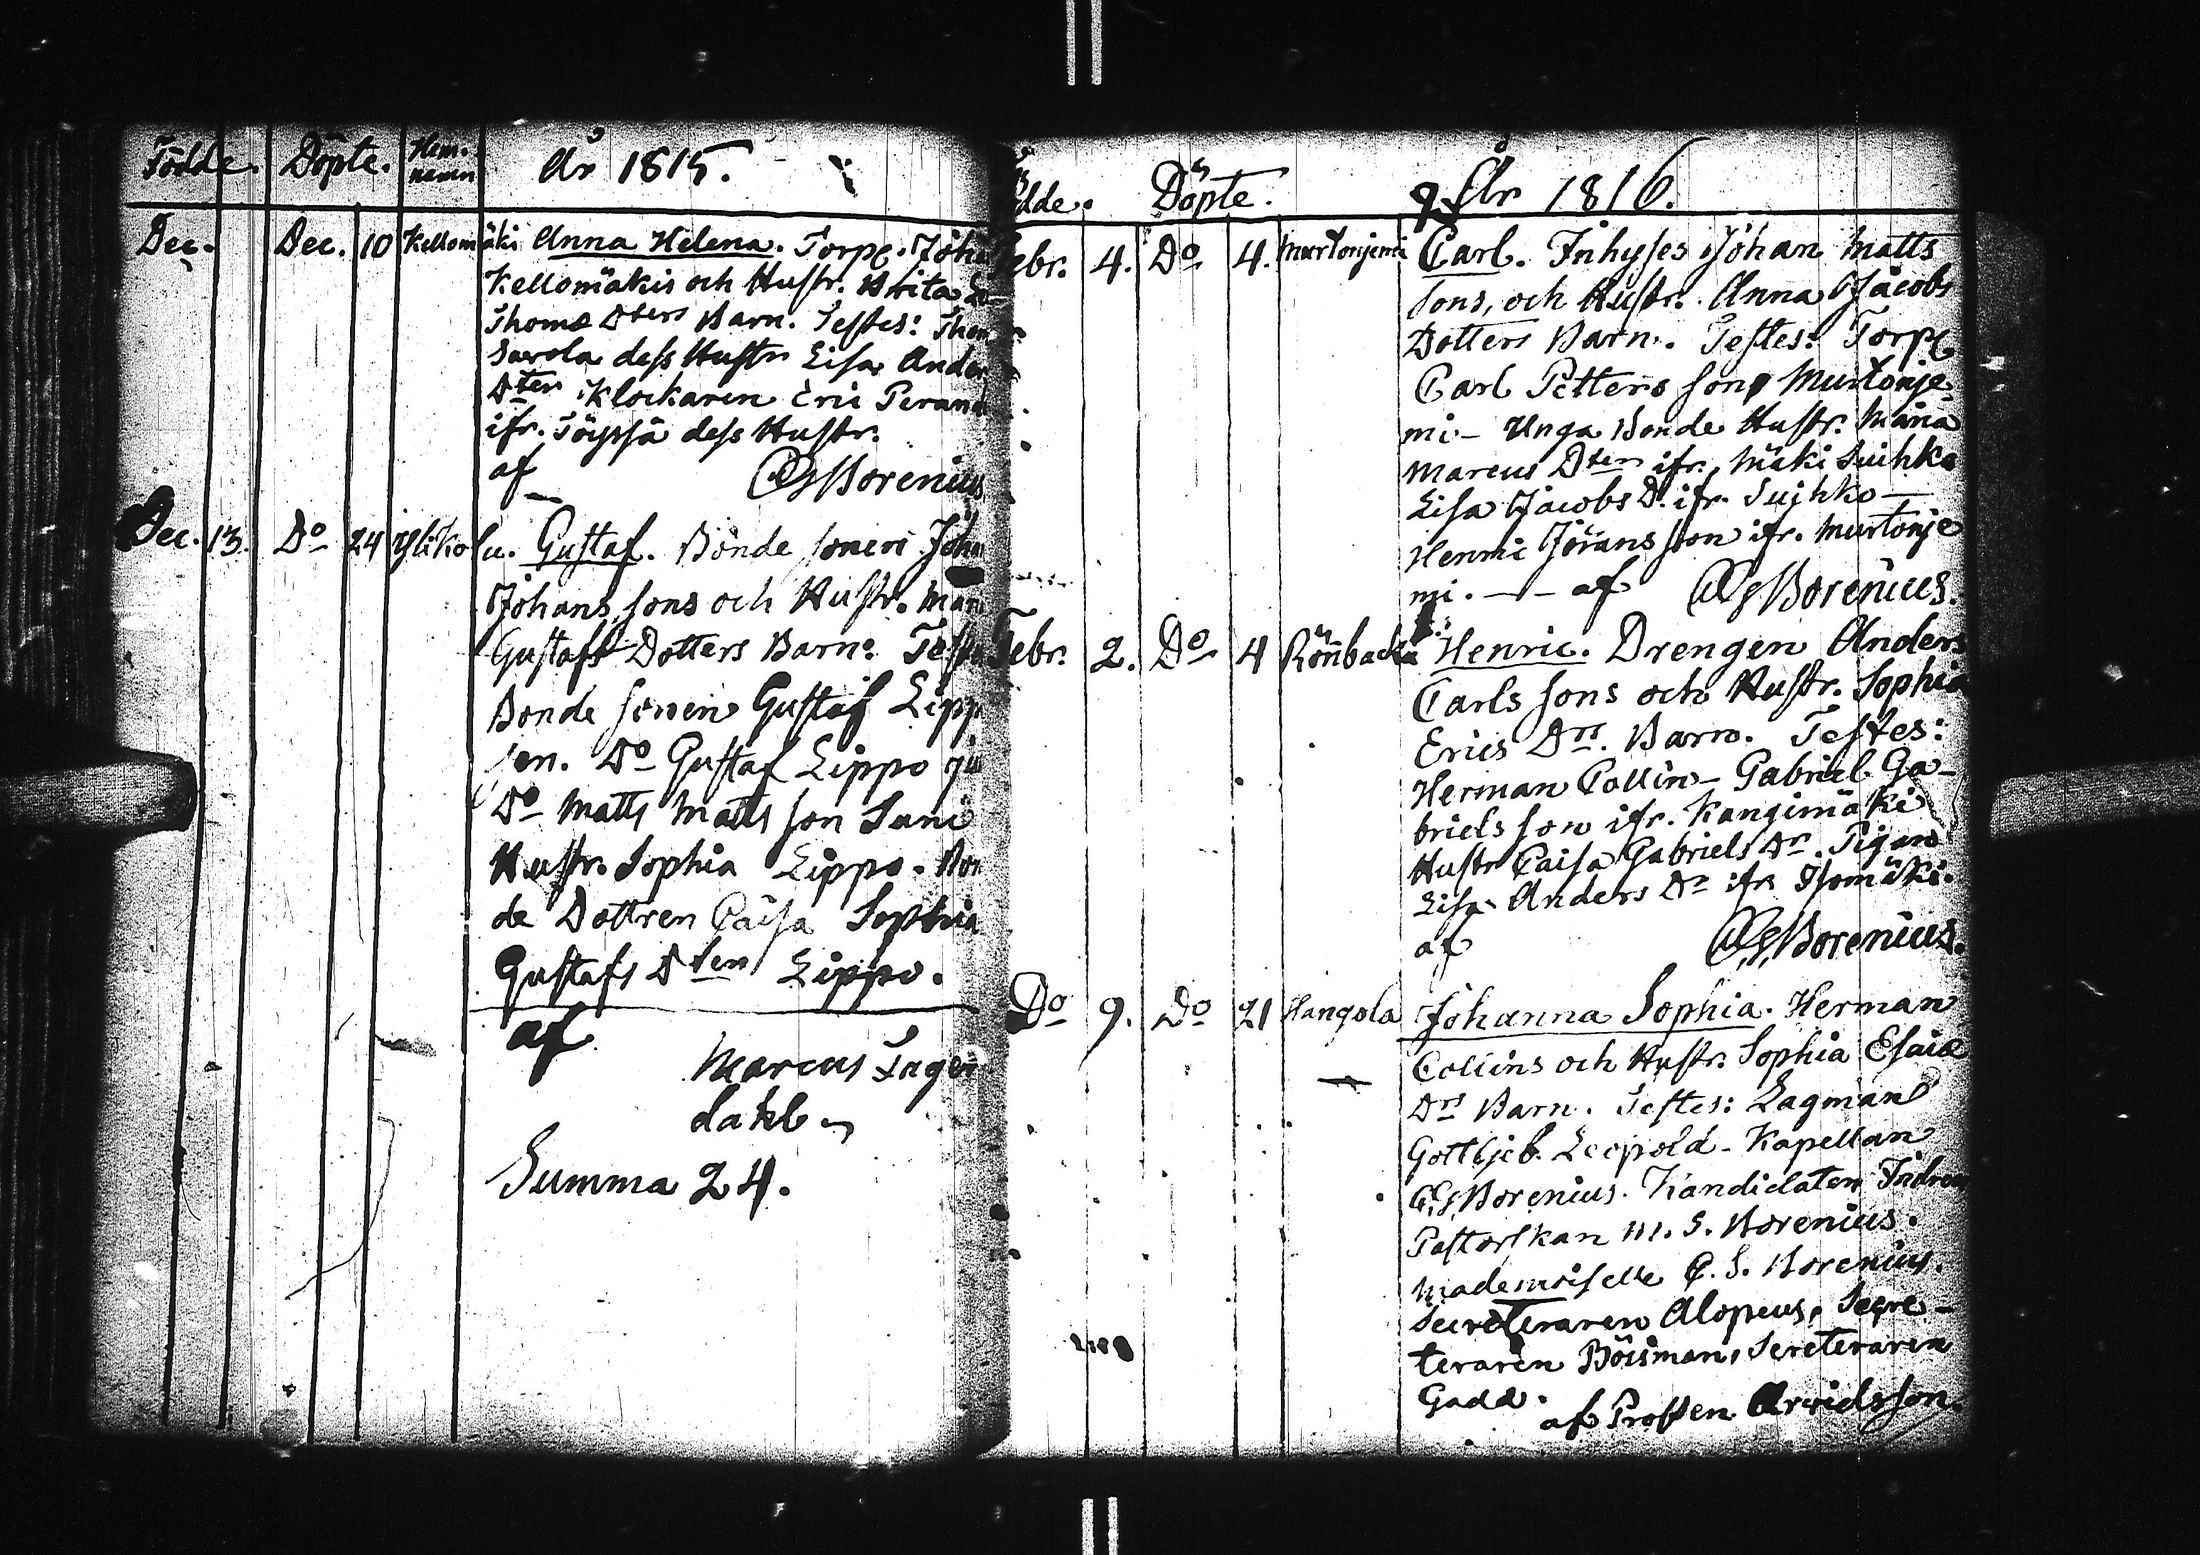 Födde. Döpte. Hem-
namn År 1815.
Dec. Dec. 10 Kellomäki Anna Helena. Torp. Joha
Kellomäkis och Hustr. Brita
Thomæ Dters Barn. Testes: Thom
Savola dess Hustr Lisa Ander
Dter Klockaren Eric Peran
ifr. Töyssä dess Hustr.
af CGBorenius
Dec. 13. Do 24 Ylikolu. Gustaf. Bonde sonen Joha
Johans sons och Hustr. Mar
Gustafs Dotters Barn. Teste
Bonde sonen Gustaf Lipp
sen. Do Gustaf Lippo ju
Do Matts Matts son Suni
Hustr. Sophia Lippo. Bon
de Dottren Caisa Sophia
Gustafs Dter Lippo.
af
Marcus Inge
dahl
Summa 24.
dde. Döpte. År 1816.
Febr. 4. Do 4. Murtonjemi Carl. Inhyses Johan Matts
sons, och Hustr. Anna Jacobs
Dotters Barn. Testes: Torp
Carl Petters son Murtonje
mi - Unga Bonde Hustr. Maria
Marcus Dter ifr. Mäki Suihko
Lisa Jacobs D. ifr. Suihko -
Henric Jörans son ifr. Murtonje
mi. - - af CGBorenius.
Febr. 2. Do 4 Rönbacka Henric. Drengen Anders
Carls sons och Hustr. Sophia
Erics Drs. Barn. Testes:
Herman Collin - Gabriel Ga-
briels son ifr. Kangimäki
Hustr Caisa Gabriels Dr. Pigan
Lisa Anders Dr ifr Isomäki.
af CGBorenius.
Do 9. Do 21 Hangola Johanna Sophia. Herman
Collins och Hustr. Sophia Esaiæ
Drs Barn. Testes: Lagman
Gottljeb Leopold - Kapellan
CGBorenius. Kandidaten
Pastorskan M. S. Borenius.
Mademoiselle C. S. Borenius.
Secreteraren Alopeus, Secre-
teraren Böisman, Sereteraren
Gadd. af Prosten Arvidsson.